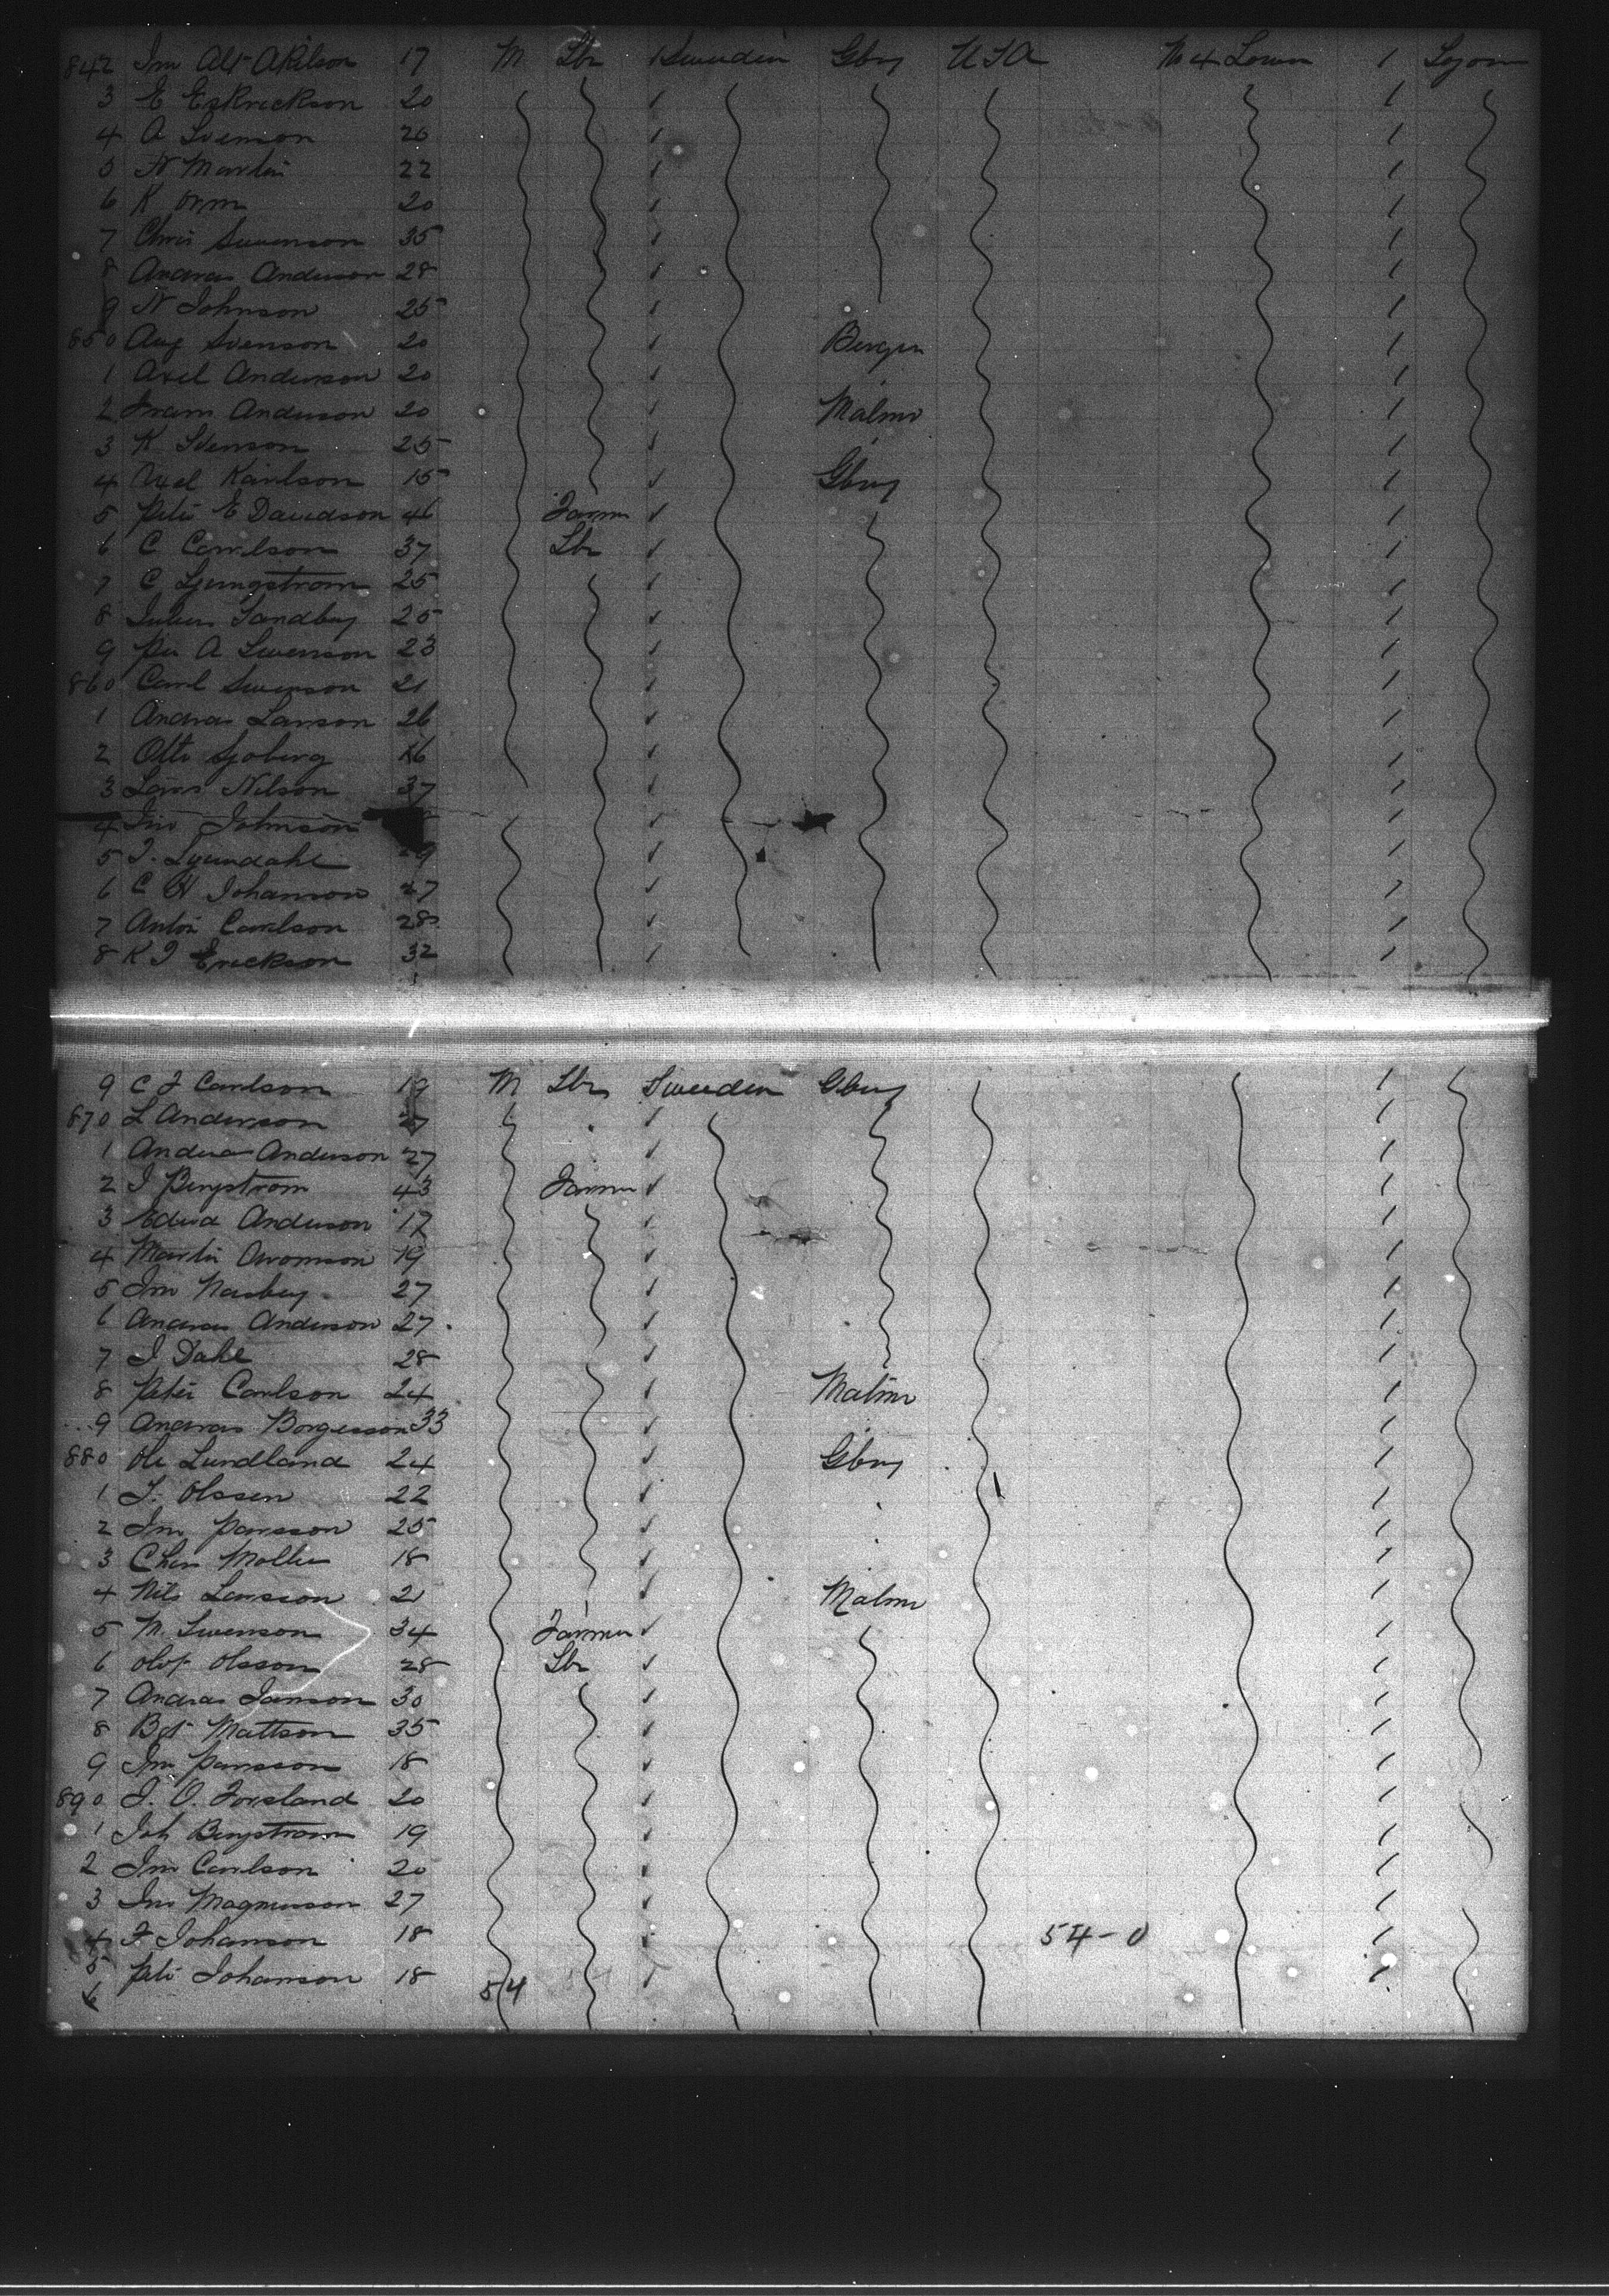 842 Jm Alf Akilson 17 M Lbr 1 Sweeden Gbrg USA No 4 Lower 1 Sojorn
3 E Eskrickson 20 1
4 A Svenson 20 1
5 N Martin 22 1
6 K Orm 20 1
7 Chris Swenson 35 1
8 Andras Anderson 28 1
9 N Johnson 25 1
850 Aug Svenson 20 Bergen 1
1 Axel Anderson 20 1
2 Frans Anderson 20 Malmo 1
3 K Svenson 25 1
4 Axel Karlson 15 Gbrg 1
5 Peter E Davidson 46 Farmr 1
6 C Carlson 37 Lbr 1
7 C Ljungstrom 25 1
8 Julius Sandberg 25 1
9 Per A Swenson 23 1
860 Carl Swenson 21 1
1 Andras Larson 26 1
2 Otto Sjoberg 16 1
3 Lars Nilson 37 1
4 Jno Johnson 1
5 J. Ljundahl 1
6 C W Johanson 27 1
7 Anton Carlson 28 1
8 K J Erickson 32 1
9 C J Carlson 19 M Lbr Sweeden Gbrg 1
870 L Anderson 27 1
1 Andras Anderson 27 1
2 J Bergstrom 43 Farmr 1
3 Edvid Anderson 17 1
4 Martin Aronson 19 1
5 Jm Nasberg 27 1
6 Andras Anderson 27 1
7 J Dahl 28 1
8 Peter Carlson 24 Malmo 1
9 Andras Borgesson 33 1
880 Ole Lundland 24 Gbrg 1
1 J. Olssen 22 1
2 Jm Parsson 25 1
3 Chas Moller 18 1
4 Nils Larsson 21 Malmo 1
5 N. Swenson 34 Farmer 1
6 Olof Olsson 28 Lbr 1
7 Andras Janson 30 1
8 Bgt Mattson 35 1
9 Jm Parsson 18 1
890 J. O. Forsland 20 1
1 Joh Bergstrom 19 1
2 Jm Carlson 20 1
3 Jno Magnusson 27 1
4 F Johanson 18 54-0 1
5 Peter Johanson 18 54 1
6